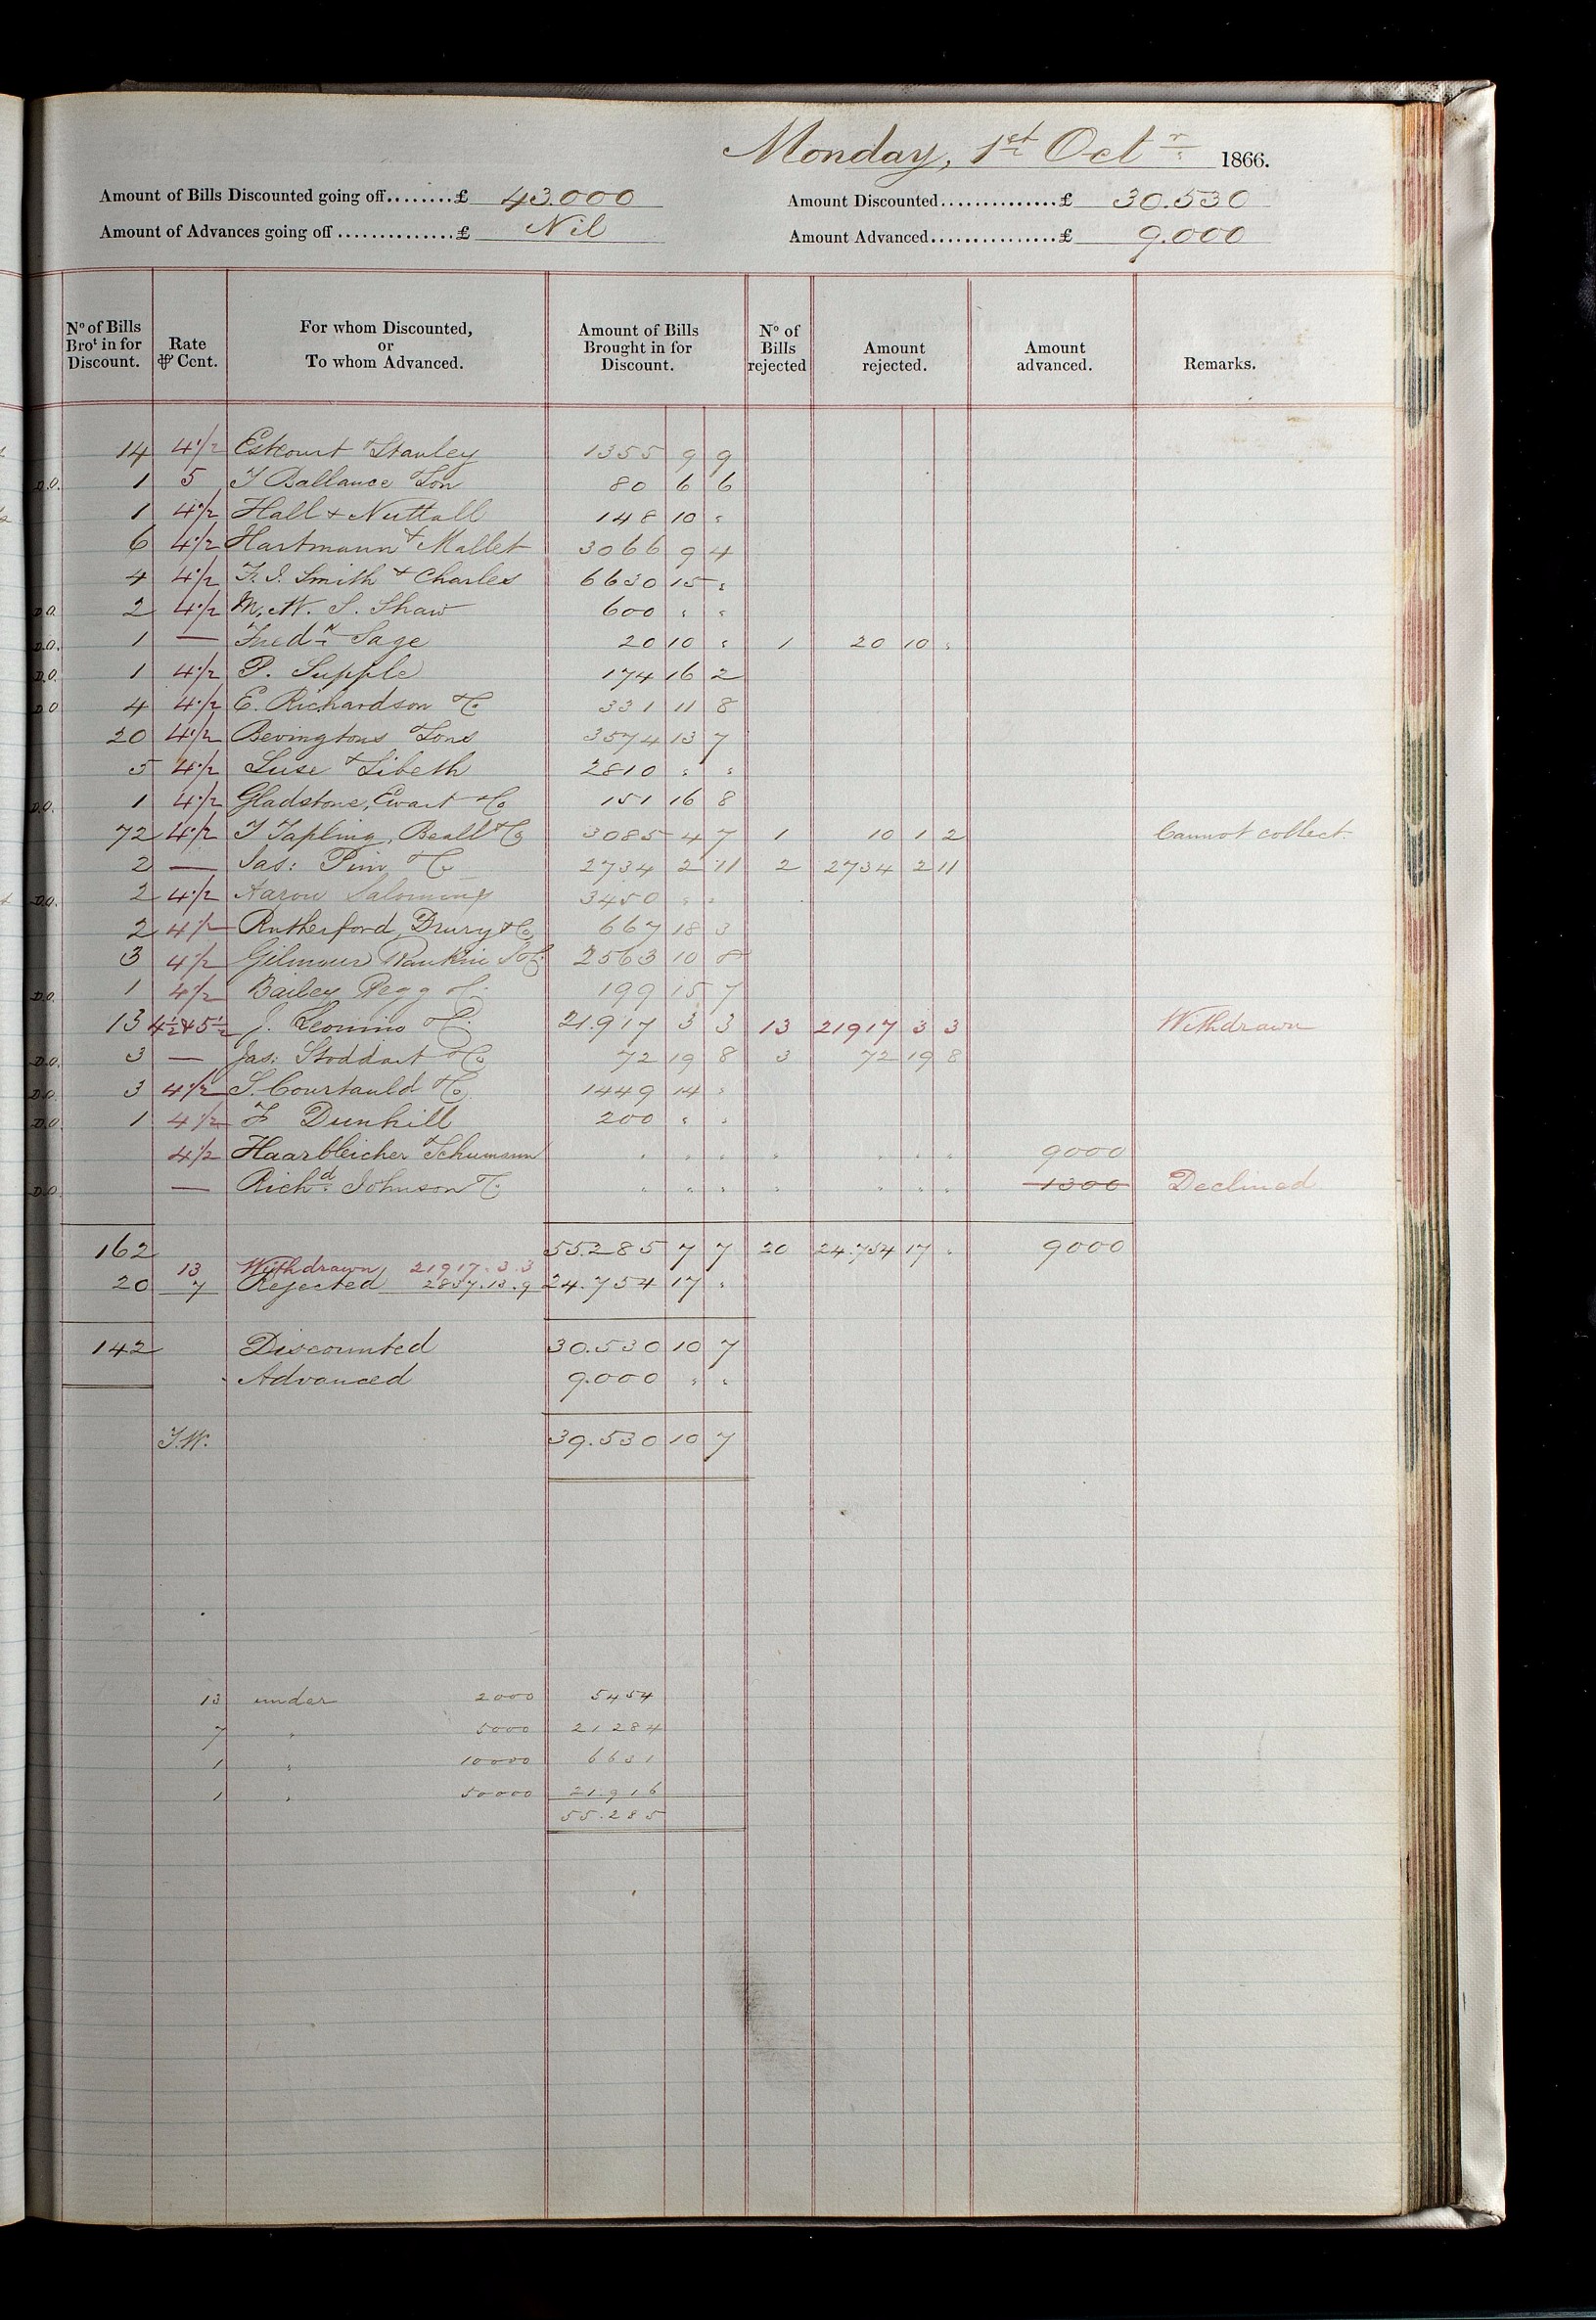 Monday, 1st Octr 1866.
Amount of Bills Discounted going off........£ 43.000 Amount Discounted..............£ 30.530
Amount of Advances going off..............£ Nil Amount Advanced................£ 9.000
No of Bills Brot in for Discount. Rate ⅌ Cent. For whom Discounted, or To whom Advanced. Amount of Bills Brought in for Discount. No of Bills rejected Amount rejected. Amount advanced. Remarks.
14 4½ Estcourt & Stanley 1355 9 9
D.O. 1 5 T Ballance & Son 80 6 6
1 4½ Hall & Nuttall 148 10 "
6 4½ Hartmann & Mallet 3066 9 4
4 4½ F. S. Smith & Charles 6630 15 "
D.O. 2 4½ M. W. S. Shaw 600 " "
D.O. 1 — Fredk Sage 20 10 " 1 20 10 "
D.O. 1 4½ P. Supple 174 16 2
D.O 4 4½ E. Richardson & Co 331 11 8
20 4½ Bevingtons & Sons 3574 13 7
5 4½ Suse & Sibeth 2810 " "
D.O. 1 4½ Gladstone, Ewart & Co 151 16 8
72 4½ T Tapling, Beall & Co 3085 4 7 1 10 1 2 Cannot collect.
2 — Jas: Pim & Co 2734 2 11 2 2734 2 11
D.O. 2 4½ Aaron Salomons 3450 " "
2 4½ Rutherford, Drury & Co 667 18 3
3 4½ Gilmour Rankin S & Co 2563 10 8
D.O. 1 4½ Bailey Pegg & Co 199 15 7
13 4½ & 5½ J. Leonino & Co. 21.917 3 3 13 21917 3 3 Withdrawn
D.O. 3 — Jas: Stoddart & Co 72 19 8 3 72 19 8
D.O. 3 4½ S. Courtauld & Co 1449 14 "
D.O. 1 4½ F Dunhill 200 " "
4½ Haarbleicher & Schumann " " " " " " " 9000
D.O. — Richd Johnson & Co " " " " " " " 1300 Declined
162 55.285 7 7 20 24.754 17 " 9000
13 Withdrawn 21917.3.3
20 7 Rejected 2837.13.9 24.754 17 "
142 Discounted 30.530 10 7
Advanced 9.000 " "
T.W. 39.530 10 7
13 under 2000 5454
7 " 5000 21284
1 " 10000 6631
1 " 50000 21.916
55.285